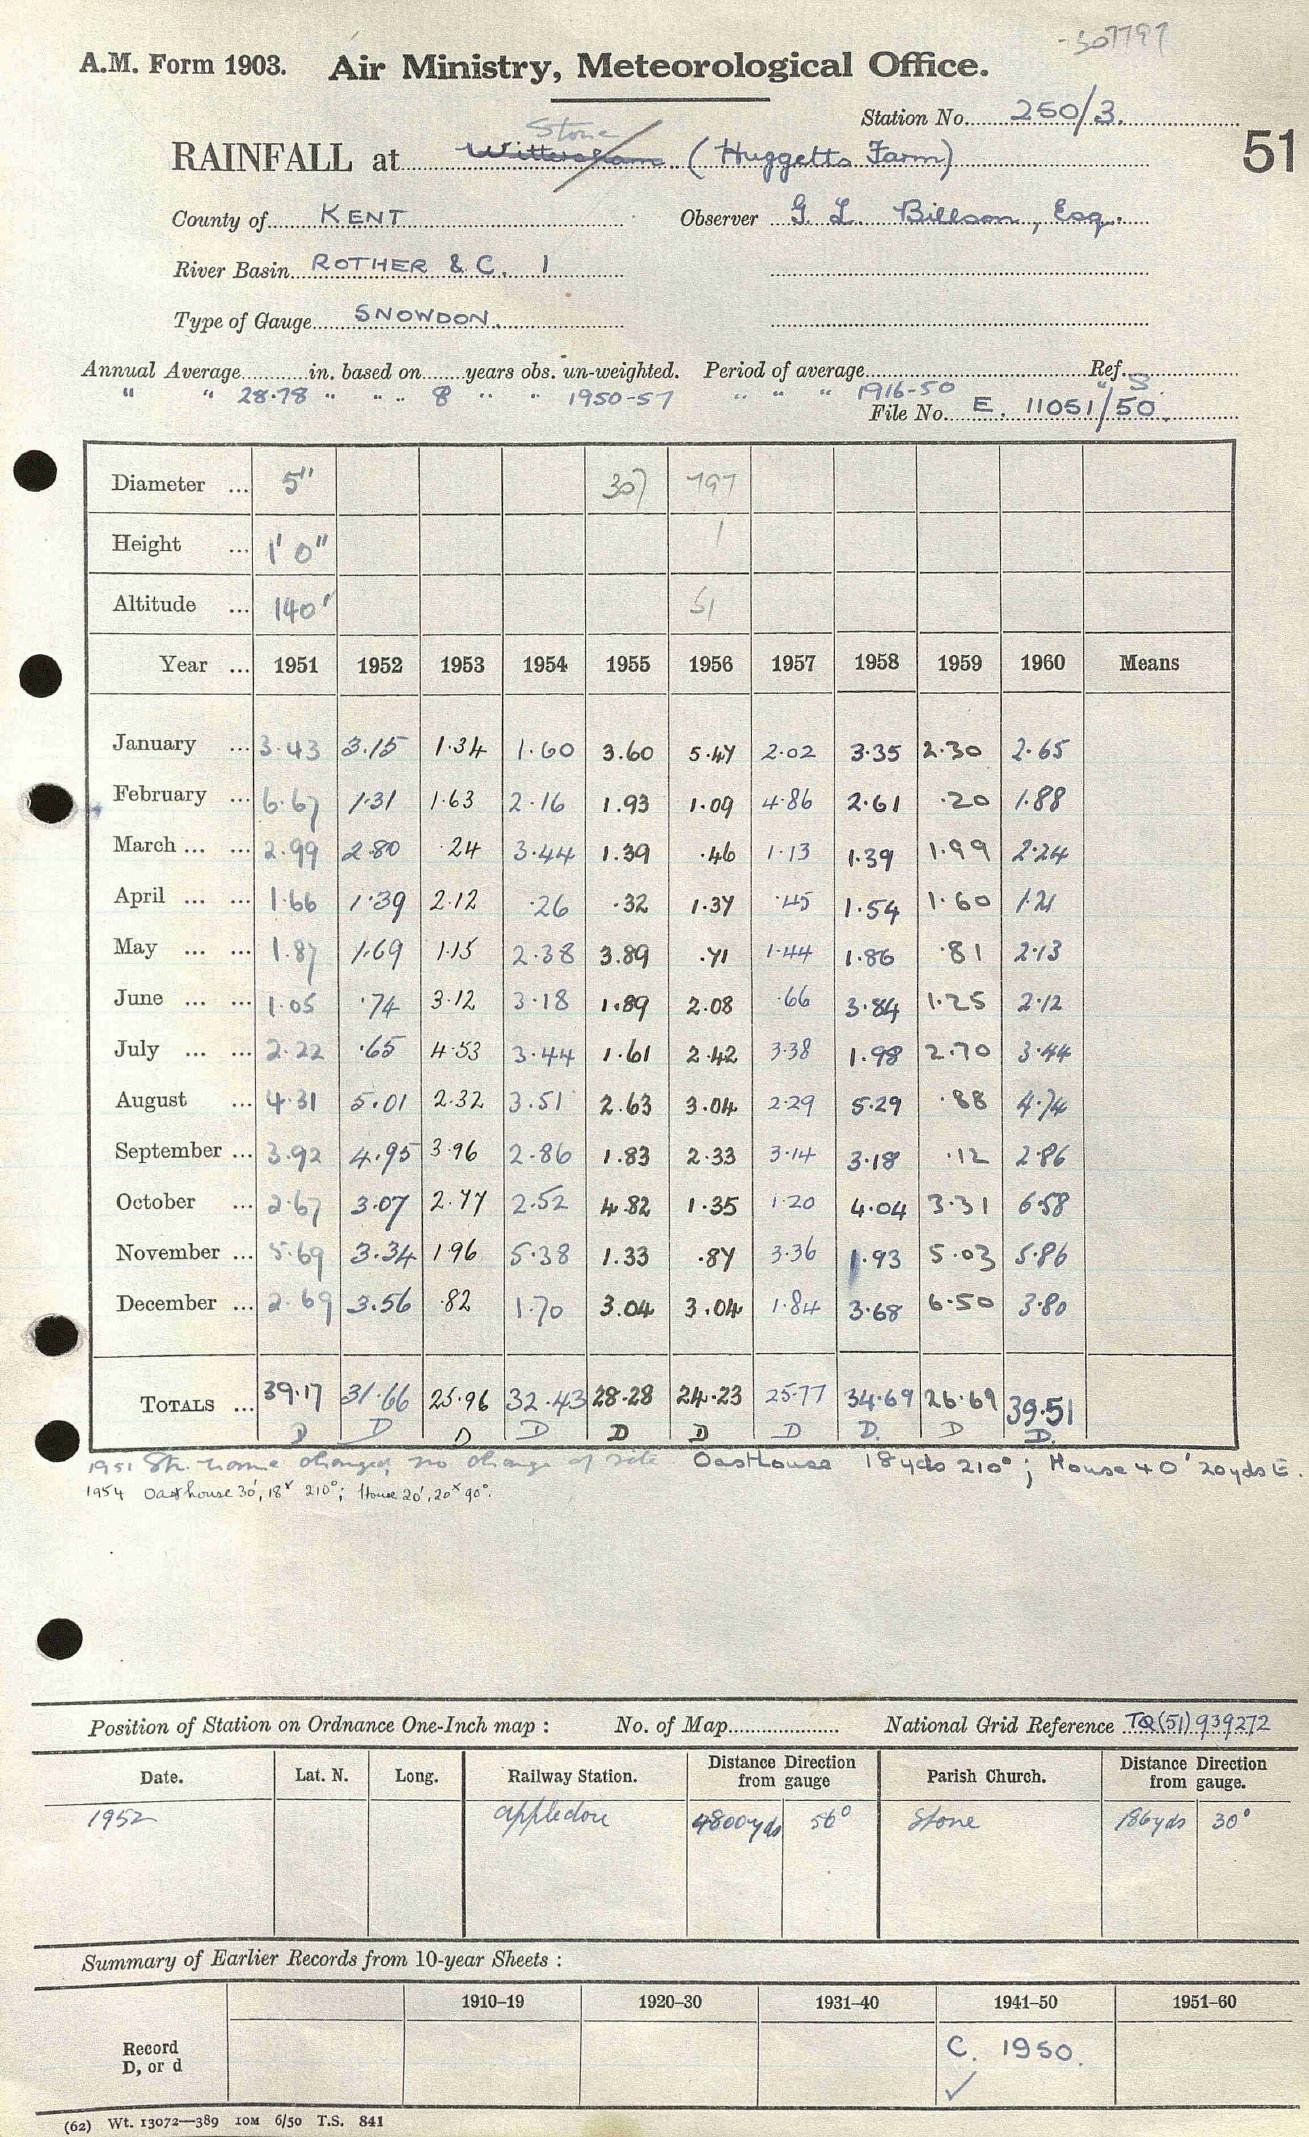 -307797
A.M. Form 1903. Air Ministry, Meteorological Office.
Station No. 250/3.
Stone
RAINFALL at Wittersham (Huggetts Farm) 51
County of KENT Observer G. L. Billson, Esq.
River Basin ROTHER & C. 1
Type of Gauge SNOWDON.
Annual Average in. based on years obs. un-weighted. Period of average Ref.
" " 28.78 " " " 8 " " 1950-57 " " " 1916-50 " S.
File No. E. 11051/50.
Diameter ... 5" 307 797
Height ... 1' 0" 1
Altitude ... 140' 51
Year ... 1951 1952 1953 1954 1955 1956 1957 1958 1959 1960 Means
January ... 3.43 3.15 1.34 1.60 3.60 5.47 2.02 3.35 2.30 2.65
February ... 6.67 1.31 1.63 2.16 1.93 1.09 4.86 2.61 .20 1.88
March ... ... 2.99 2.80 .24 3.44 1.39 .46 1.13 1.39 1.99 2.24
April ... ... 1.66 1.39 2.12 .26 .32 1.37 .45 1.54 1.60 1.21
May ... ... 1.87 1.69 1.15 2.38 3.89 .71 1.44 1.86 .81 2.13
June ... ... 1.05 .74 3.12 3.18 1.89 2.08 .66 3.84 1.25 2.12
July ... ... 2.22 .65 4.53 3.44 1.61 2.42 3.38 1.98 2.70 3.44
August ... 4.31 5.01 2.32 3.51 2.63 3.04 2.29 5.29 .88 4.74
September ... 3.92 4.95 3.96 2.86 1.83 2.33 3.14 3.18 .12 2.86
October ... 2.67 3.07 2.77 2.52 4.82 1.35 1.20 4.04 3.31 6.58
November ... 5.69 3.34 1.96 5.38 1.33 .87 3.36 1.93 5.03 5.86
December ... 2.69 3.56 .82 1.70 3.04 3.04 1.84 3.68 6.50 3.80
TOTALS ... 39.17 31.66 25.96 32.43 28.28 24.23 25.77 34.69 26.69 39.51
D D D D D D D D. D D.
1951 Stn. name changed, no change of site Oasthouse 18yds 210°; House 40' 20yds E.
1954 Oasthouse 30', 18x 210°; House 20', 20x 90°.
Position of Station on Ordnance One-Inch map : No. of Map National Grid Reference TQ(51)939272
Date. Lat. N. Long. Railway Station. Distance Direction from gauge Parish Church. Distance Direction from gauge.
1952 Appledore 4800yds 56° Stone 186yds 30°
Summary of Earlier Records from 10-year Sheets :
1910–19 1920–30 1931–40 1941–50 1951–60
Record D, or d C. 1950. ✓
(62) Wt. 13072—389 10M 6/50 T.S. 841